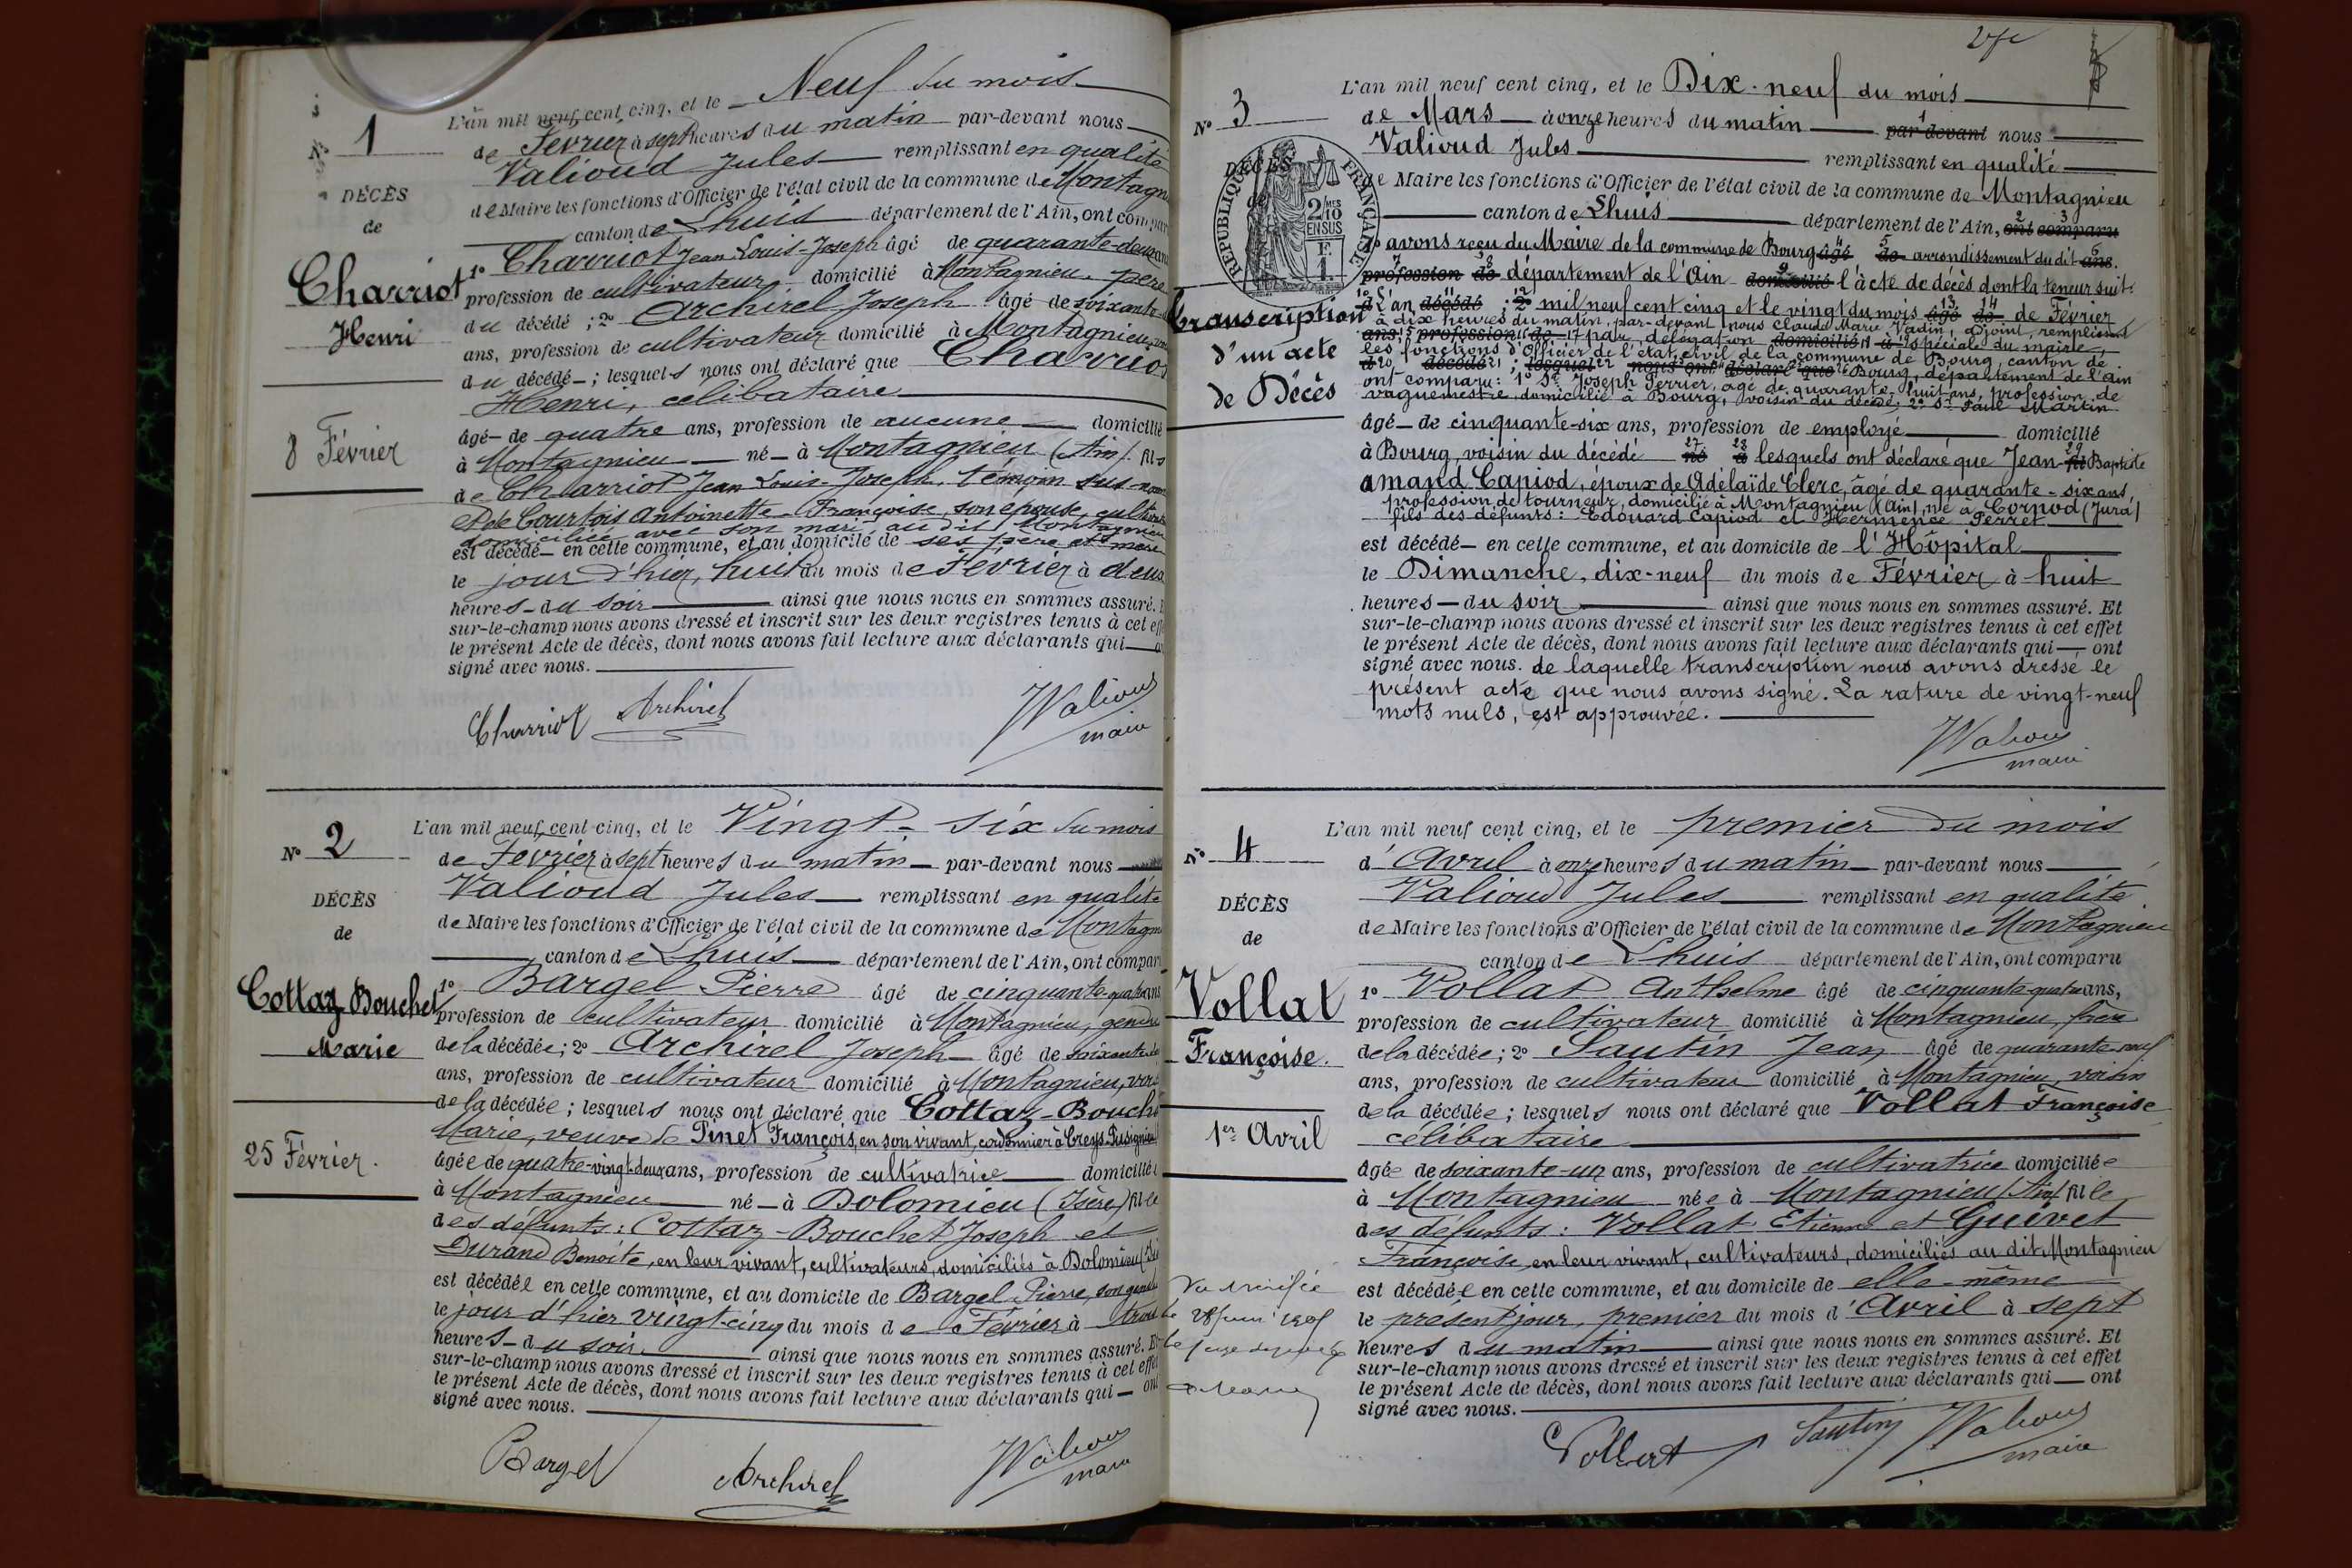 N° 1
DÉCÈS
de
Charriot
Henri
8 Février
L'an mil neuf cent cinq, et le Neuf du mois
de Février à sept heures du matin par-devant nous
Valioud Jules remplissant en qualité
de Maire les fonctions d'Officier de l'état civil de la commune de Montagn
canton de Lhuis département de l'Ain, ont compar
1° Charriot Jean Louis-Joseph âgé de quarante-deux ans
profession de cultivateur domicilié à Montagnieu, père
du décédé ; 2° Archirel Joseph âgé de soixante
ans, profession de cultivateur domicilié à Montagnieu,
du décédé ; lesquels nous ont déclaré que Charriot
Henri, célibataire
âgé de quatre ans, profession de aucune domicilié
à Montagnieu né à Montagnieu (Ain) fils
de Charriot Jean Louis-Joseph, témoin sus-nom
et de Courtois Antoinette-Françoise, son épouse, cultiva
domiciliée avec son mari au dit Montagnieu
est décédé en cette commune, et au domicile de ses père et mère
le jour d'hier, huit du mois de Février à deux
heures du soir ainsi que nous nous en sommes assuré. E
sur-le-champ nous avons dressé et inscrit sur les deux registres tenus à cet eff
le présent Acte de décès, dont nous avons fait lecture aux déclarants qui
signé avec nous.
Charriot Archirel JValioud
maire
N° 2
DÉCÈS
de
Cottaz Bouchet
Marie
25 Février.
L'an mil neuf cent cinq, et le Vingt-six du mois
de Février à sept heures du matin par-devant nous
Valioud Jules remplissant en qualité
de Maire les fonctions d'Officier de l'état civil de la commune de Montagn
canton de Lhuis département de l'Ain, ont compar
1° Bargel Pierre âgé de cinquante-quatre ans
profession de cultivateur domicilié à Montagnieu, gendre
de la décédée ; 2° Archirel Joseph âgé de soixante
ans, profession de cultivateur domicilié à Montagnieu, vois
de la décédée ; lesquels nous ont déclaré que Cottaz-Bouche
Marie, veuve de Pinet François, en son vivant, cordonnier à Creys-Pusignieu
âgée de quatre-vingt-deux ans, profession de cultivatrice domiciliée
à Montagnieu né à Dolomieu (Isère) fille
des défunts : Cottaz-Bouchet Joseph et
Durand Benoite, en leur vivant, cultivateurs, domiciliés à Dolomieu
est décédée en cette commune, et au domicile de Bargel Pierre, son gendre
le jour d'hier vingt-cinq du mois de Février à trois
heures du soir ainsi que nous nous en sommes assuré. Et
sur-le-champ nous avons dressé et inscrit sur les deux registres tenus à cet effet
le présent Acte de décès, dont nous avons fait lecture aux déclarants qui ont
signé avec nous.
Bargel Archirel JValioud
maire
N° 3
DÉCÈS
de
RÉPUBLIQUE FRANÇAISE
2/10 MES
EN SUS
F.
1
Transcription
d'un acte
de Décès
L'an mil neuf cent cinq, et le Dix-neuf du mois
de Mars à onze heures du matin par-devant nous
Valioud Jules remplissant en qualité
de Maire les fonctions d'Officier de l'état civil de la commune de Montagnieu
canton de Lhuis département de l'Ain, ont comparu
1° avons reçu du Maire de la commune de Bourg âgé de arrondissement du dit ans.
profession de département de l'Ain domicilié l'acte de décès dont la teneur suit:
d L'an décédé ; 2° mil neuf cent cinq et le vingt du mois âgé de de Février
à dix heures du matin, par-devant nous Claude Marie Vadin, adjoint, remplissant
ans, profession de par délégation domicilié à spéciale du maire,
les fonctions d'Officier de l'état civil de la commune de Bourg, canton de
décédé ; lesquel nous ont déclaré que Bourg, département de l'Ain
ont comparu: 1° Sr Joseph Perrier, âgé de quarante-huit ans, profession de
vaguemestre, domicilié à Bourg, voisin du décédé, 2° Sr Paul Martin
âgé de cinquante-six ans, profession de employé domicilié
à Bourg, voisin du décédé né à lesquels ont déclaré que Jean-fil Baptiste
Amand Capiod, époux de Adélaïde Clerc, âgé de quarante-six ans,
profession de tourneur, domicilié à Montagnieu (Ain), né à Cornod (Jura)
fils des défunts : Edouard Capiod et Hermence Perret
est décédé en cette commune, et au domicile de l'Hôpital
le Dimanche, dix-neuf du mois de Février à huit
heures du soir ainsi que nous nous en sommes assuré. Et
sur-le-champ nous avons dressé et inscrit sur les deux registres tenus à cet effet
le présent Acte de décès, dont nous avons fait lecture aux déclarants qui ont
signé avec nous. de laquelle transcription nous avons dressé le
présent acte que nous avons signé. La rature de vingt-neuf
mots nuls, est approuvée.
JValioud
maire
N° 4
DÉCÈS
de
Vollat
Françoise.
1er Avril
Vu
le 28 juin 1905
le juge
L'an mil neuf cent cinq, et le premier du mois
d'Avril à onze heures du matin par-devant nous
Valioud Jules remplissant en qualité
de Maire les fonctions d'Officier de l'état civil de la commune de Montagnieu
canton de Lhuis département de l'Ain, ont comparu
1° Vollat Anthelme âgé de cinquante-quatre ans,
profession de cultivateur domicilié à Montagnieu, frère
de la décédée ; 2° Sautin Jean âgé de quarante-neuf
ans, profession de cultivateur domicilié à Montagnieu, voisin
de la décédée ; lesquels nous ont déclaré que Vollat Françoise
célibataire
âgée de soixante-un ans, profession de cultivatrice domiciliée
à Montagnieu née à Montagnieu (Ain) fille
des défunts : Vollat Etienne et Guivet
Françoise, en leur vivant, cultivateurs, domiciliés au dit Montagnieu
est décédée en cette commune, et au domicile de elle-même
le présent jour, premier du mois d'Avril à sept
heures du matin ainsi que nous nous en sommes assuré. Et
sur-le-champ nous avons dressé et inscrit sur les deux registres tenus à cet effet
le présent Acte de décès, dont nous avons fait lecture aux déclarants qui ont
signé avec nous.
Vollat Sautin JValioud
maire